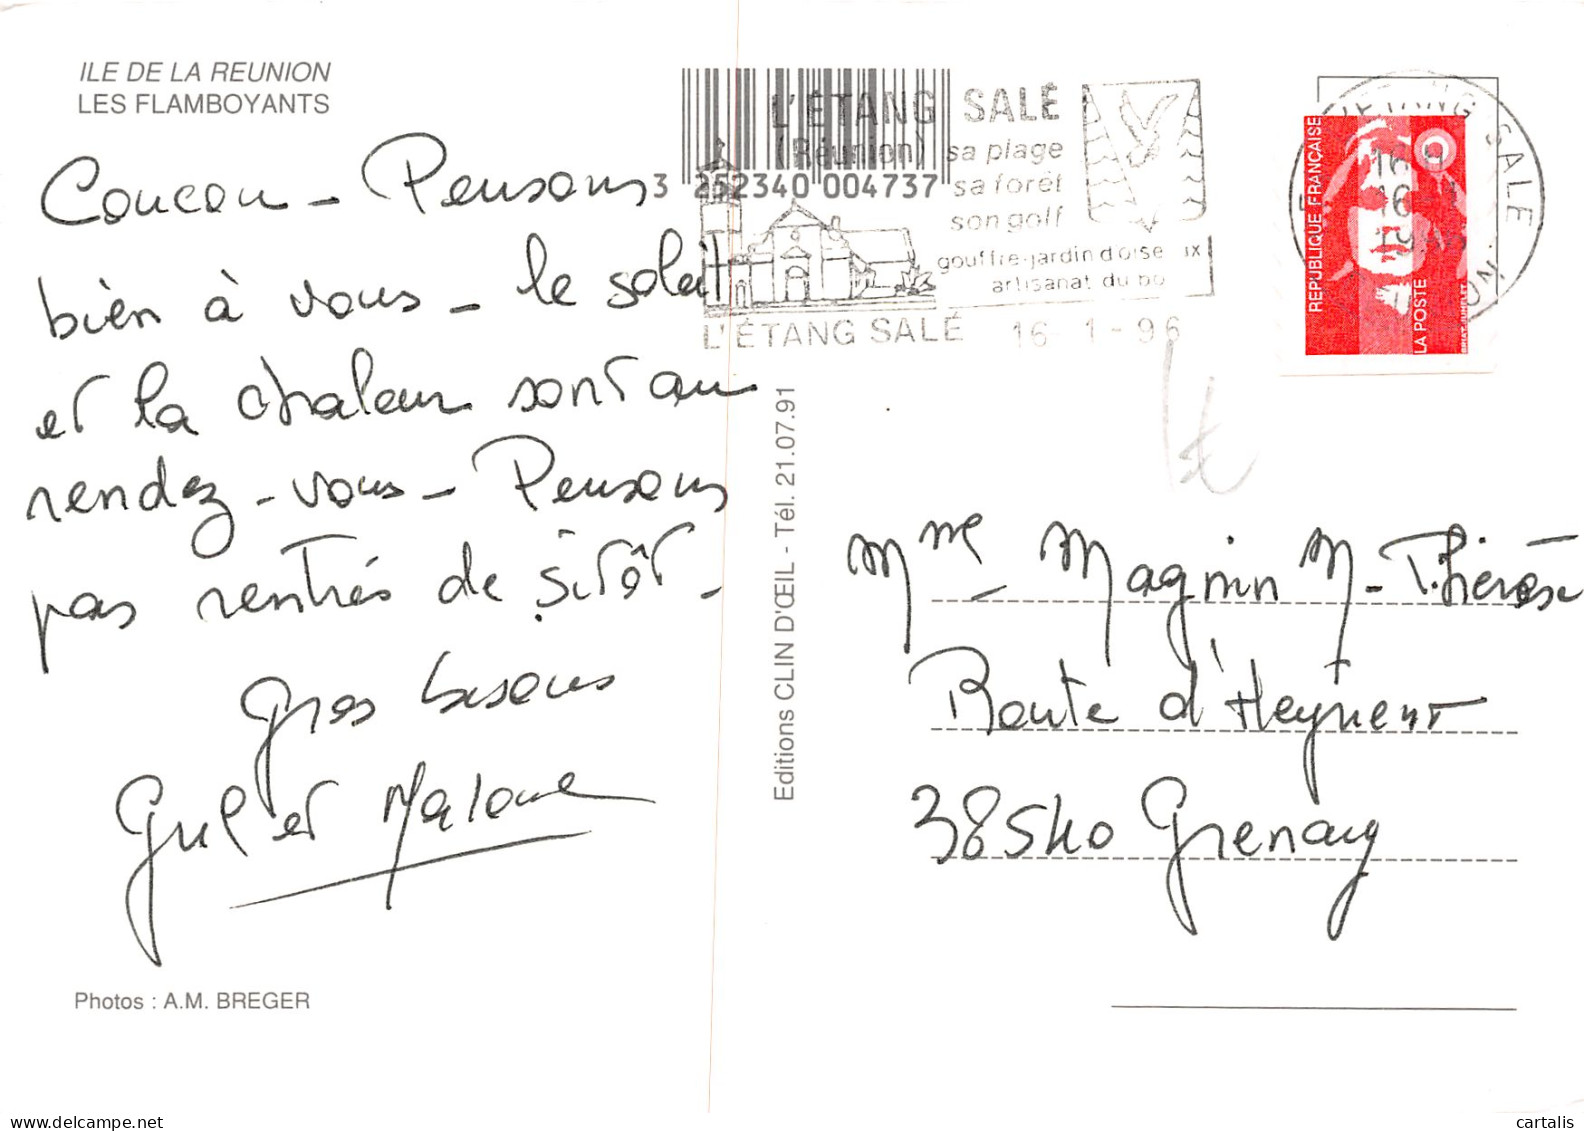 ILE DE LA REUNION
LES FLAMBOYANTS
Coucou - Pensons
bien à vous - le soleil
et la chaleur sont au
rendez-vous - Pensons
pas rentrés de sitôt -
Gros bisous
et
Photos : A.M. BREGER
3 252340 004737
L'ÉTANG SALÉ
(Réunion) sa plage
sa forêt
son golf
gouffre-jardin d'oise ux
artisanat du bo
L'ÉTANG SALÉ 16 - 1 - 96
Editions CLIN D'ŒIL - Tél. 21.07.91
L'ETANG SALE
REPUBLIQUE FRANÇAISE
LA POSTE
BRIAT-JUMELET
Mme Magnin M-Thérèse
Route d'Heyrieux
38540 Grenay
cartalis
delcampe.net